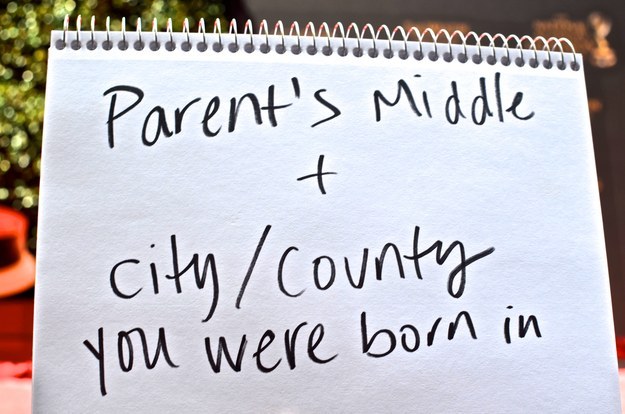 Parent's Middle
+
city/county
you were born in